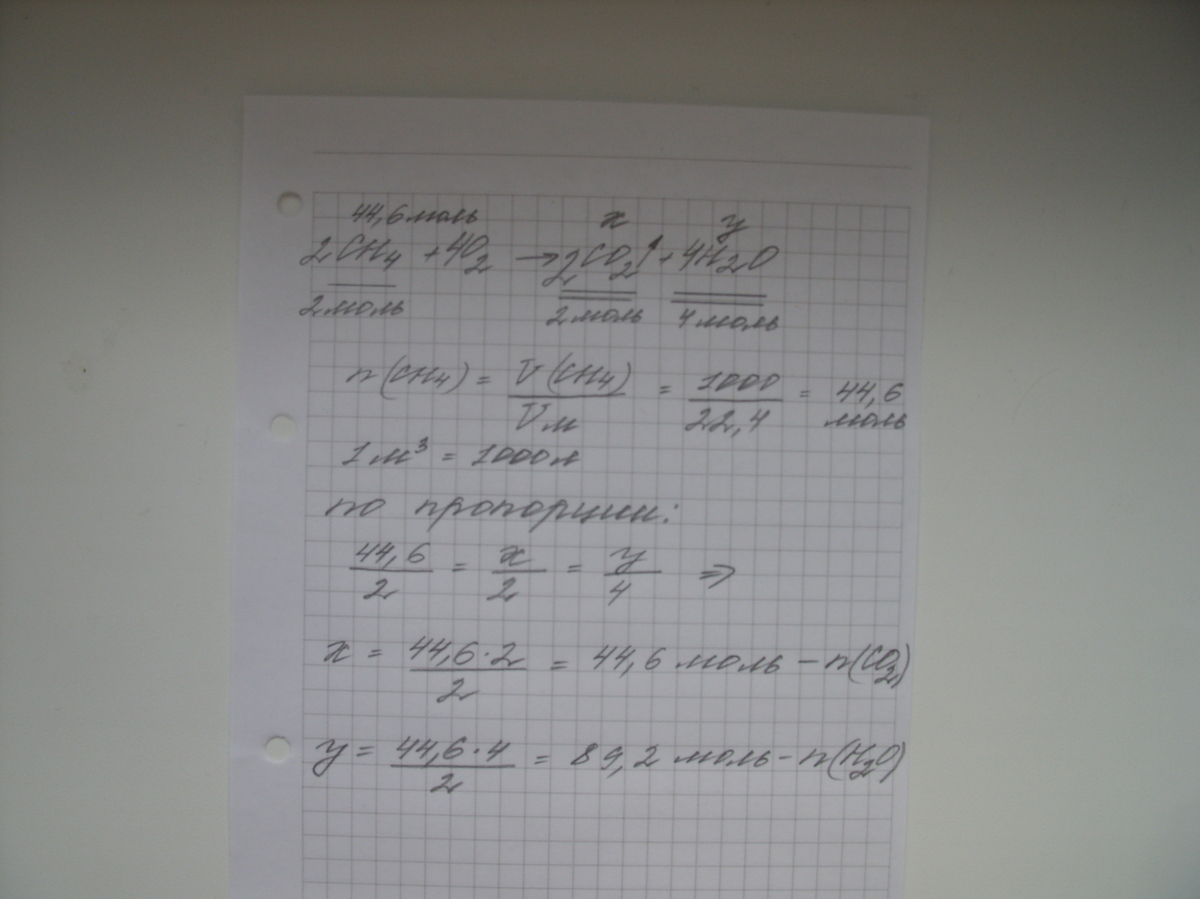 44,6 моль x y
2CH₄ + 4O₂ → 2CO₂↑ + 4H₂O
2 моль 2 моль 4 моль
n(CH₄) = V(CH₄)/Vм = 1000/22,4 = 44,6 моль
1 м³ = 1000 л
по пропорции:
44,6/2 = x/2 = y/4 ⇒
x = 44,6·2/2 = 44,6 моль – n(CO₂)
y = 44,6·4/2 = 89,2 моль – n(H₂O)